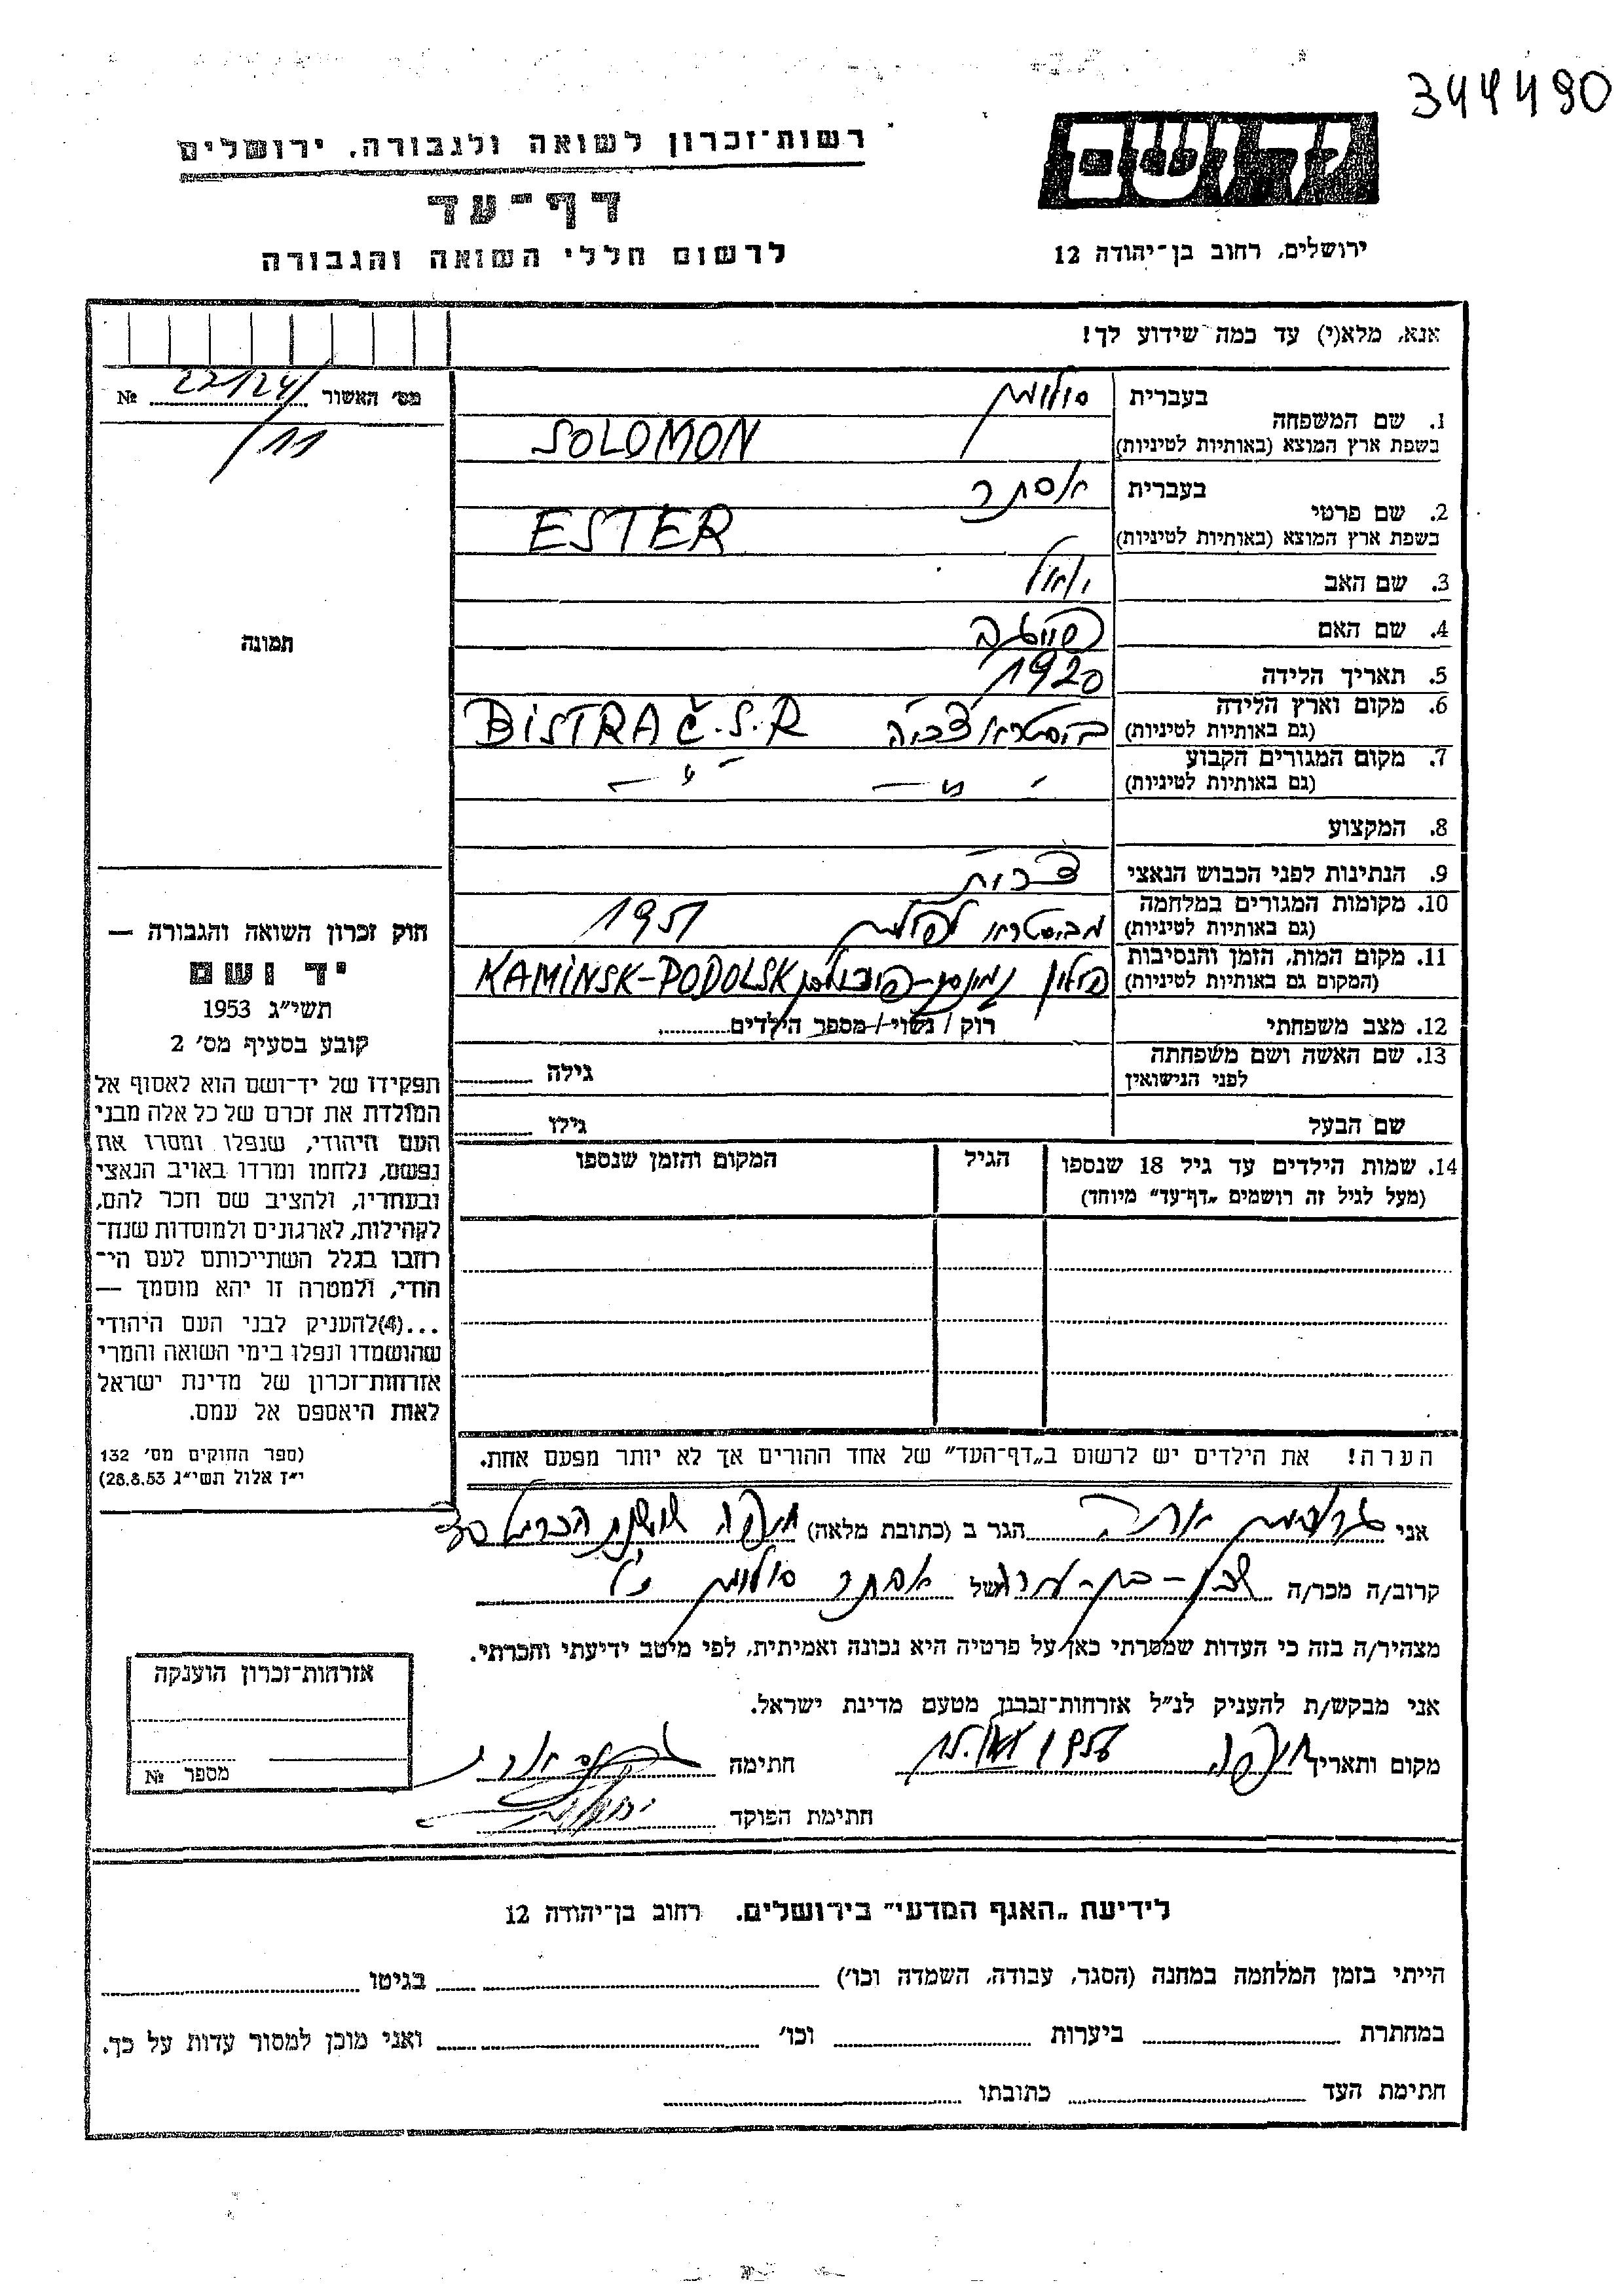 344490
יד ושם
רשות־זכרון לשואה ולגבורה, ירושלים
דף־עד
לרשום חללי השואה והגבורה
ירושלים, רחוב בן־יהודה 12
אנא, מלא(י) עד כמה שידוע לך!
מס׳ האשור 22124/ №
/11
תמונה
חוק זכרון השואה והגבורה —
יד ושם
תשי״ג 1953
קובע בסעיף מס׳ 2
תפקידו של יד־ושם הוא לאסוף אל
המולדת את זכרם של כל אלה מבני
העם היהודי, שנפלו ומסרו את
נפשם, נלחמו ומרדו באויב הנאצי
ובעוזריו, ולהציב שם וזכר להם,
לקהילות, לארגונים ולמוסדות שנח־
רבו בגלל השתייכותם לעם הי־
הודי, ולמטרה זו יהא מוסמך —
...(4)להעניק לבני העם היהודי
שהושמדו ונפלו בימי השואה והמרי
אזרחות־זכרון של מדינת ישראל
לאות היאספם אל עמם.
(ספר החוקים מס׳ 132
י״ז אלול תשי״ג 28.8.53)
1. שם המשפחה
בעברית סולומון
בשפת ארץ המוצא (באותיות לטיניות) SOLOMON
2. שם פרטי
בעברית אסתר
בשפת ארץ המוצא (באותיות לטיניות) ESTER
3. שם האב
4. שם האם
5. תאריך הלידה 1920
6. מקום וארץ הלידה
(גם באותיות לטיניות) BISTRA Č.S.R
7. מקום המגורים הקבוע
(גם באותיות לטיניות) — " —
8. המקצוע
9. הנתינות לפני הכבוש הנאצי
10. מקומות המגורים במלחמה
(גם באותיות לטיניות)
11. מקום המות, הזמן והנסיבות
(המקום גם באותיות לטיניות) KAMINSK-PODOLSK
12. מצב משפחתי רוק / נשוי / מספר הילדים
13. שם האשה ושם משפחתה
לפני הנישואין גילה
שם הבעל גילו
14. שמות הילדים עד גיל 18 שנספו הגיל המקום והזמן שנספו
(מעל לגיל זה רושמים „דף־עד״ מיוחד)
הערה! את הילדים יש לרשום ב„דף־העד״ של אחד ההורים אך לא יותר מפעם אחת.
אני הגר ב (כתובת מלאה) חיפה
קרוב/ה מכר/ה של אסתר סולומון
מצהיר/ה בזה כי העדות שמסרתי כאן על פרטיה היא נכונה ואמיתית, לפי מיטב ידיעתי והכרתי.
אני מבקש/ת להעניק לנ״ל אזרחות־זכרון מטעם מדינת ישראל.
מקום ותאריך חיפה חתימה
חתימת הפוקד
אזרחות־זכרון הוענקה
מספר №
לידיעת „האגף המדעי״ בירושלים. רחוב בן־יהודה 12
הייתי בזמן המלחמה במחנה (הסגר, עבודה, השמדה וכו׳) בגיטו
במחתרת ביערות וכו׳ ואני מוכן למסור עדות על כך.
חתימת העד כתובתו